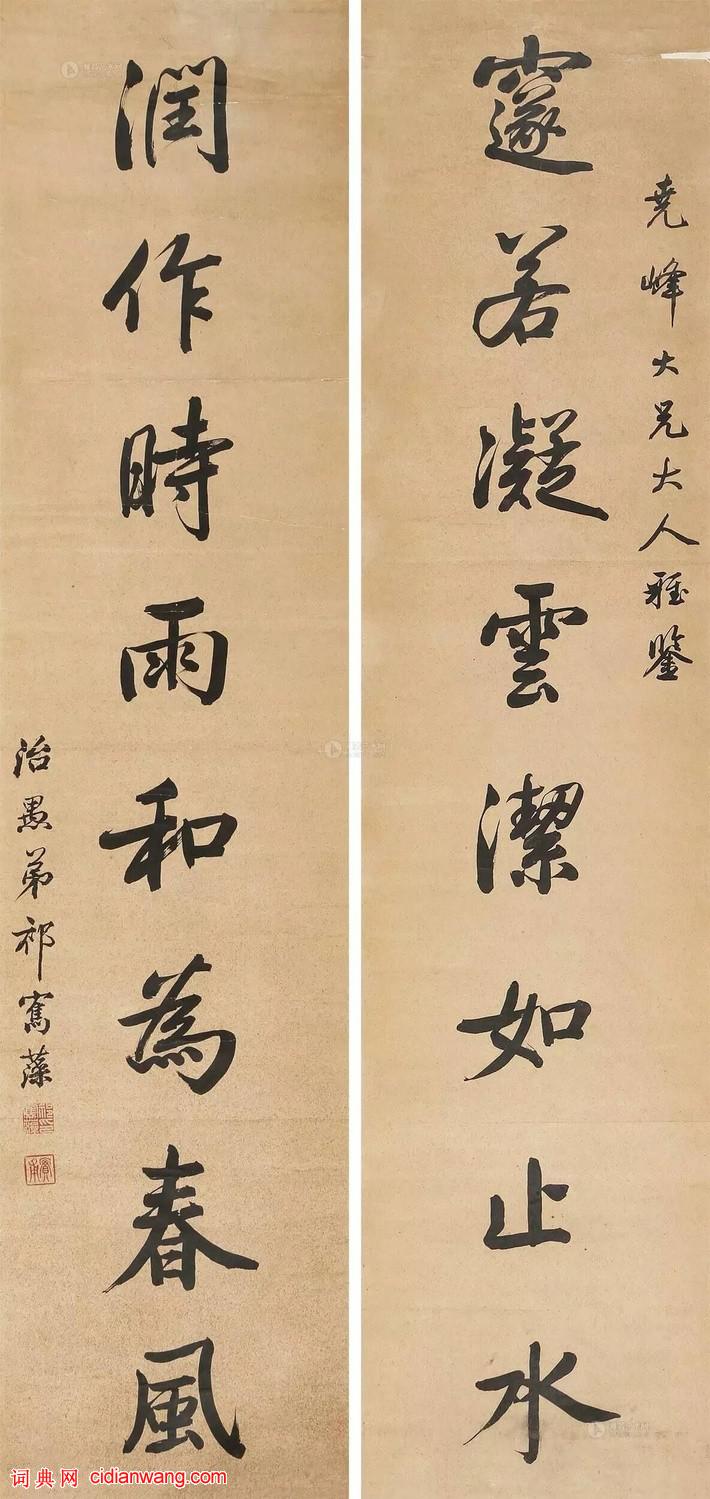 堯峰大兄大人雅鑒
邃若凝雲潔如止水
潤作時雨和為春風
治愚弟祁寯藻
词典网 cidianwang.com